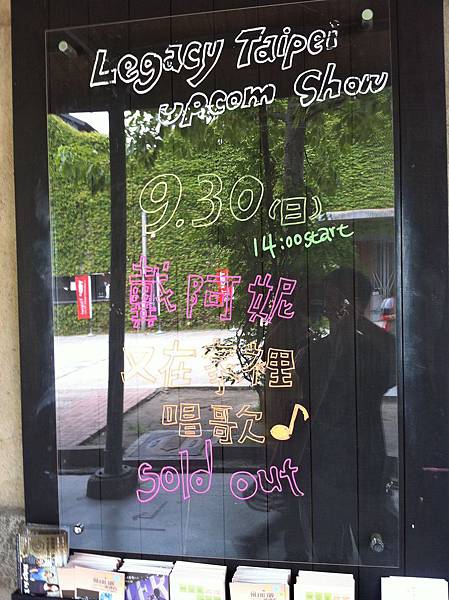 Legacy Taipei
upcom Show
9.30(日)
14:00start
戴阿妮
又在家裡
唱歌♪
sold out